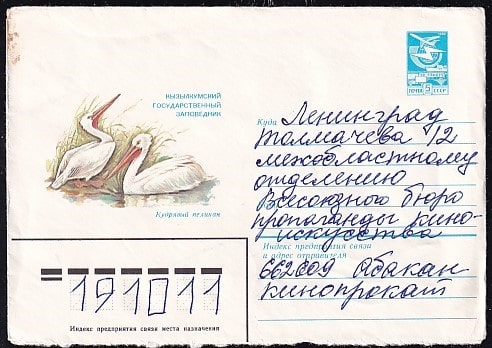 КЫЗЫЛКУМСКИЙ
ГОСУДАРСТВЕННЫЙ
ЗАПОВЕДНИК
Кудрявый пеликан
ПОЧТА 5 СССР
Куда Ленинград
Толмачева 12
межобластному
отделению
Всесоюзного бюро
пропаганды кино-
искусства
Индекс предприятия связи
и адрес отправителя
662609 Абакан
кинопрокат
191011
Индекс предприятия связи места назначения